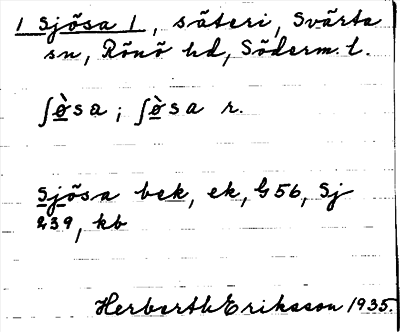 1 Sjösa 1, säteri, Svärta
sn, Rönö hd, Söderm. l.
ʃø̀sa; ʃø̀sa r.
Sjösa bek, ek, G56, Sj
239, kb
Herbert Eriksson 1935.